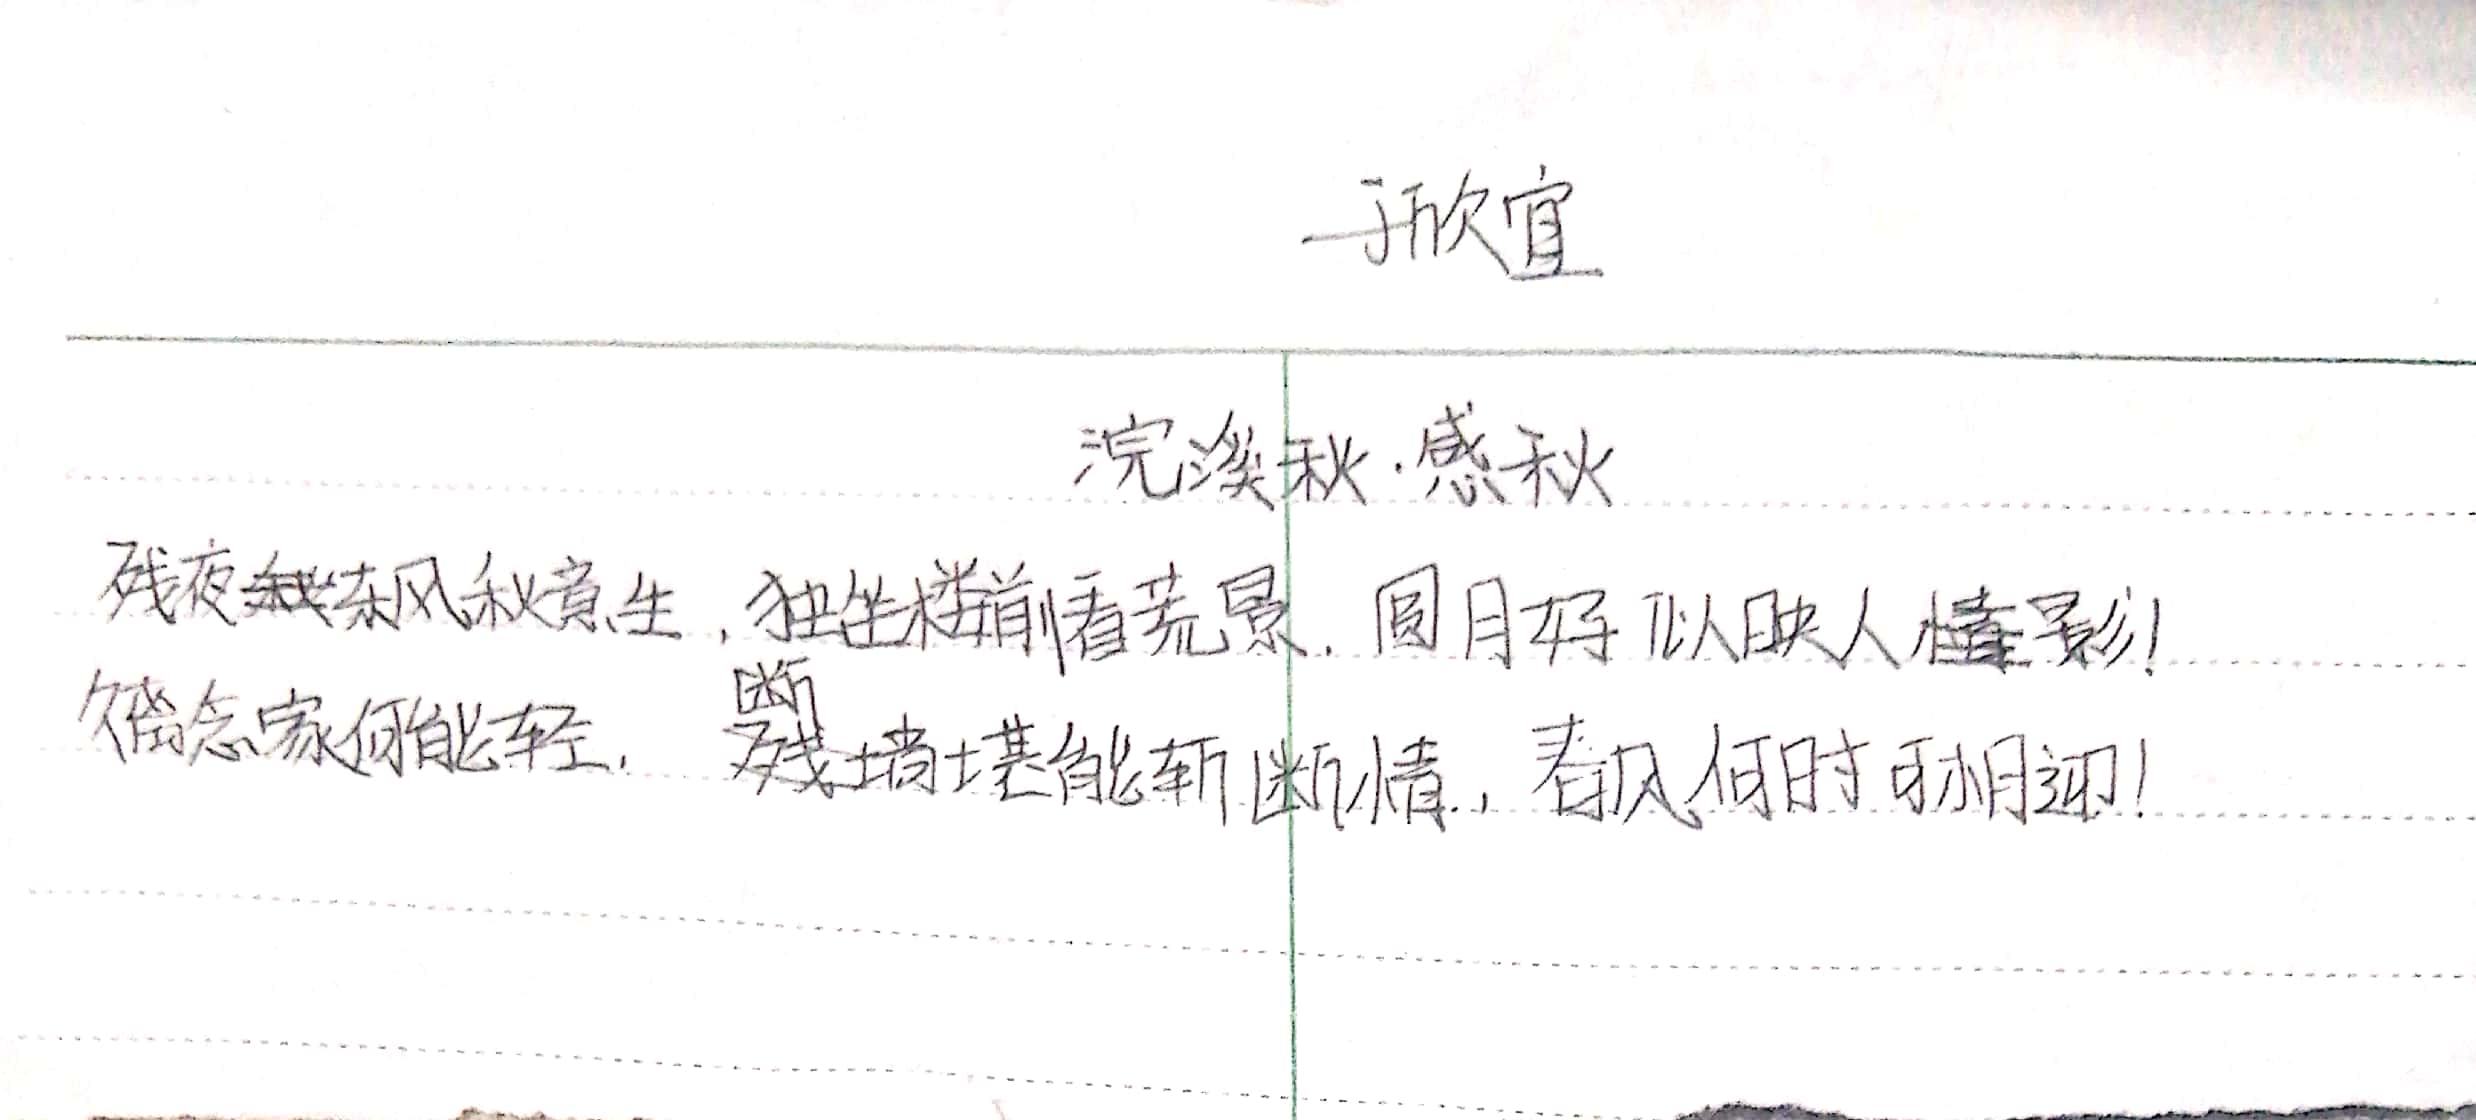 于欣宜
浣溪秋·感秋
残夜东风秋意生，独坐楼前看荒景．圆月好似映人影！
离念家何能轻． 断墙堪能斩断情．，春风何时可相迎！